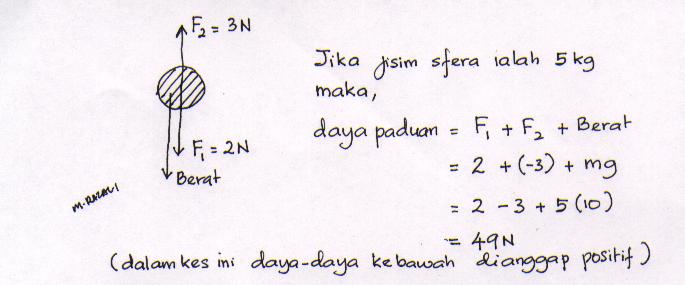 F₂ = 3N
F₁ = 2N
Berat
M. RAZALI
Jika jisim sfera ialah 5 kg
maka,
daya paduan = F₁ + F₂ + Berat
= 2 + (-3) + mg
= 2 - 3 + 5 (10)
= 49N
(dalam kes ini daya-daya kebawah dianggap positif)